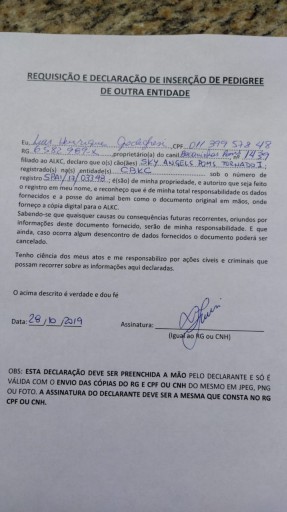 REQUISIÇÃO E DECLARAÇÃO DE INSERÇÃO DE PEDIGREE
DE OUTRA ENTIDADE
Eu, Henrique CPF 011 399 578 48
RG proprietário(a) do canil 1439
filiado ao ALKC, declaro que o(s) cão(ães) SKY ANGELS POMS TORNADO I,
registrado(s) na(s) entidade(s) CBKC sob o número de
registro SPAV/17/03198, é(são) de minha propriedade, e autorizo que seja feito
o registro em meu nome, e reconheço que é de minha total responsabilidade os dados
fornecidos e a posse do animal bem como o documento original em mãos, onde
forneço a cópia digital para o ALKC.
Sabendo-se que quaisquer causas ou consequências futuras recorrentes, oriundos por
informações deste documento fornecido, serão de minha responsabilidade. E que
ainda, caso ocorra algum desencontro de dados fornecidos o documento poderá ser
cancelado.
Tenho ciência dos meus atos e me responsabilizo por ações cíveis e criminais que
possam recorrer sobre as informações aqui declaradas.
O acima descrito é verdade e dou fé
Data: 28/10/2019 Assinatura:
(Igual ao RG ou CNH)
OBS: ESTA DECLARAÇÃO DEVE SER PREENCHIDA A MÃO PELO DECLARANTE E SÓ É
VÁLIDA COM O ENVIO DAS CÓPIAS DO RG E CPF OU CNH DO MESMO EM JPEG, PNG
OU FOTO. A ASSINATURA DO DECLARANTE DEVE SER A MESMA QUE CONSTA NO RG
CPF OU CNH.